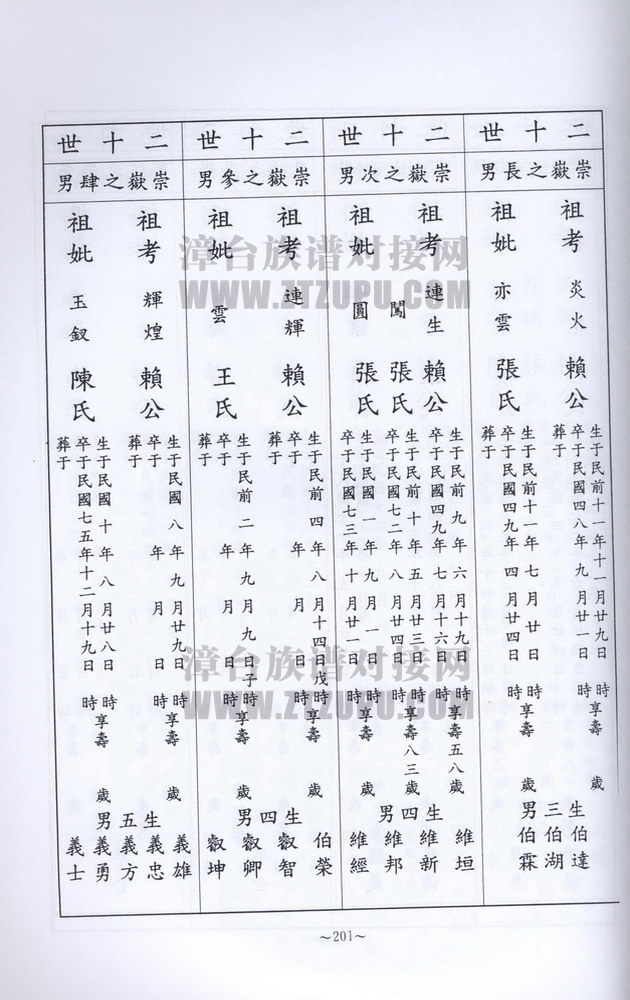 二十世
崇嶽之長男
祖考 炎火 賴公
生于民前十一年十一月廿九日 時享壽 歲
卒于民國四八年九月廿一日 時
葬于
祖妣 亦雲 張氏
生于民前十一年七月廿日 時享壽 歲
卒于民國四九年四月廿四日 時
葬于
生三男
伯達
伯湖
伯霖
二十世
崇嶽之次男
祖考 連生 賴公
生于民前九年六月十九日 時享壽五八歲
卒于民國四九年七月十六日 時
祖妣 闖 張氏
生于民前十年五月廿三日 時享壽八三歲
卒于民國七二年八月廿四日 時
圓 張氏
生于民國一年九月一日 時享壽 歲
卒于民國七三年十月廿一日 時
生四男
維垣
維新
維邦
維經
二十世
崇嶽之參男
祖考 連輝 賴公
生于民前四年八月十四日戌時享壽 歲
卒于 年 月 日 時
葬于
祖妣 雲 王氏
生于民前二年九月九日子時享壽 歲
卒于 年 月 日 時
葬于
生四男
伯榮
叡智
叡卿
叡坤
二十世
崇嶽之肆男
祖考 輝煌 賴公
生于民國八年九月廿九日 時享壽 歲
卒于 年 月 日 時
葬于
祖妣 玉釵 陳氏
生于民國十年八月廿八日 時享壽 歲
卒于民國七五年十二月十九日 時
葬于
生五男
義雄
義忠
義方
義勇
義士
~201~
漳台族谱对接网
WWW.ZTZUPU.COM
漳台族谱对接网
WWW.ZTZUPU.COM